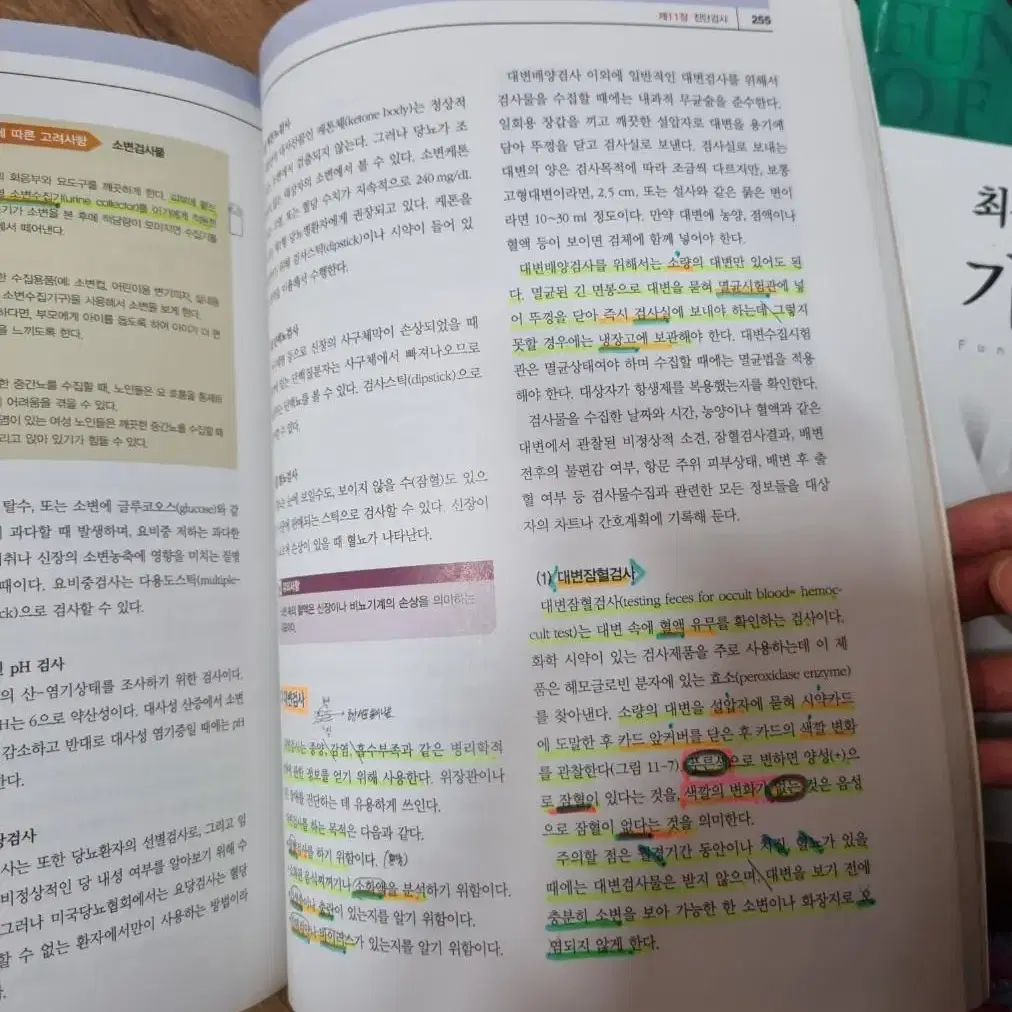 에 따른 고려사항
소변검사물
의 회음부와 요도구를 깨끗하게 한다.
소변수집기(urine collector)를 아기에게 적용한
기가 소변을 본 후에 적당량이 모아지면 수집기를
에서 떼어낸다.
한 수집용품(예: 소변컵, 어린이용 변기의자, 실내용
소변수집기구)을 사용해서 소변을 보게 한다.
하다면, 부모에게 아이를 돕도록 하여 아이가 더 편
을 느끼도록 한다.
한 중간뇨를 수집할 때, 노인들은 요 흐름을 통제하
어려움을 겪을 수 있다.
염이 있는 여성 노인들은 깨끗한 중간뇨를 수집할 때
리고 앉아 있기가 힘들 수 있다.
탈수, 또는 소변에 글루코오스(glucose)와 같
이 과다할 때 발생하며, 요비중 저하는 과다한
취나 신장의 소변농축에 영향을 미치는 질병
때이다. 요비중검사는 다용도스틱(multiple-
ck)으로 검사할 수 있다.
pH 검사
의 산-염기상태를 조사하기 위한 검사이다.
H는 6으로 약산성이다. 대사성 산증에서 소변
감소하고 반대로 대사성 염기증일 때에는 pH
한다.
당검사
사는 또한 당뇨환자의 선별검사로, 그리고 임
비정상적인 당 내성 여부를 알아보기 위해 수
그러나 미국당뇨협회에서는 요당검사는 혈당
할 수 없는 환자에서만이 사용하는 방법이라
제11장 진단검사
255
케톤체(ketone body)는 정상적
검출되지 않는다. 그러나 당뇨가 조
대상자의 소변에서 볼 수 있다. 소변케톤
또는 혈당 수치가 지속적으로 240 mg/dL
당뇨병환자에게 권장되고 있다. 케톤을
위해 검사스틱(dipstick)이나 시약이 들어 있
이용해서 수행한다.
등으로 신장의 사구체막이 손상되었을 때
있는 단백질분자는 사구체에서 빠져나오므로
단백뇨를 볼 수 있다. 검사스틱(dipstick)으로
할 수 있다.
눈에 보일수도, 보이지 않을 수(잠혈)도 있으
판매되는 스틱으로 검사할 수 있다. 신장이
손상이 있을 때 혈뇨가 나타난다.
혈액은 신장이나 비뇨기계의 손상을 의미하는
대변검사
종양, 감염, 흡수부족과 같은 병리학적
대한 정보를 얻기 위해 사용한다. 위장관이나
진단하는 데 유용하게 쓰인다.
하는 목적은 다음과 같다.
하기 위함이다.
음식찌꺼기나 소화액을 분석하기 위함이다.
충란이 있는지를 알기 위함이다.
바이러스가 있는지를 알기 위함이다.
대변배양검사 이외에 일반적인 대변검사를 위해서
검사물을 수집할 때에는 내과적 무균술을 준수한다.
일회용 장갑을 끼고 깨끗한 설압자로 대변을 용기에
담아 뚜껑을 닫고 검사실로 보낸다. 검사실로 보내는
대변의 양은 검사목적에 따라 조금씩 다르지만, 보통
고형대변이라면, 2.5 cm, 또는 설사와 같은 묽은 변이
라면 10~30 ml 정도이다. 만약 대변에 농양, 점액이나
혈액 등이 보이면 검체에 함께 넣어야 한다.
대변배양검사를 위해서는 소량의 대변만 있어도 된
다. 멸균된 긴 면봉으로 대변을 묻혀 멸균시험관에 넣
어 뚜껑을 닫아 즉시 검사실에 보내야 하는데 그렇지
못할 경우에는 냉장고에 보관해야 한다. 대변수집시험
관은 멸균상태여야 하며 수집할 때에는 멸균법을 적용
해야 한다. 대상자가 항생제를 복용했는지를 확인한다.
검사물을 수집한 날짜와 시간, 농양이나 혈액과 같은
대변에서 관찰된 비정상적 소견, 잠혈검사결과, 배변
전후의 불편감 여부, 항문 주위 피부상태, 배변 후 출
혈 여부 등 검사물수집과 관련한 모든 정보들을 대상
자의 차트나 간호계획에 기록해 둔다.
(1) 대변잠혈검사
대변잠혈검사(testing feces for occult blood= hemoc-
cult test)는 대변 속에 혈액 유무를 확인하는 검산이다.
화학 시약이 있는 검사제품을 주로 사용하는데 이 제
품은 헤모글로빈 분자에 있는 효소(peroxidase enzyme)
를 찾아낸다. 소량의 대변을 설압자에 묻혀 시약카드
에 도말한 후 카드 앞커버를 닫은 후 카드의 색깔 변화
를 관찰한다(그림 11-7). 푸른색으로 변하면 양성(+)으
로 잠혈이 있다는 것을, 색깔의 변화가 없는 것은 음성
으로 잠혈이 없다는 것을 의미한다.
주의할 점은 월경기간 동안이나 치질, 혈뇨가 있을
때에는 대변검사물은 받지 않으며, 대변을 보기 전에
충분히 소변을 보아 가능한 한 소변이나 화장지로 오
염되지 않게 한다.
FUN
OF
최
기
Fun